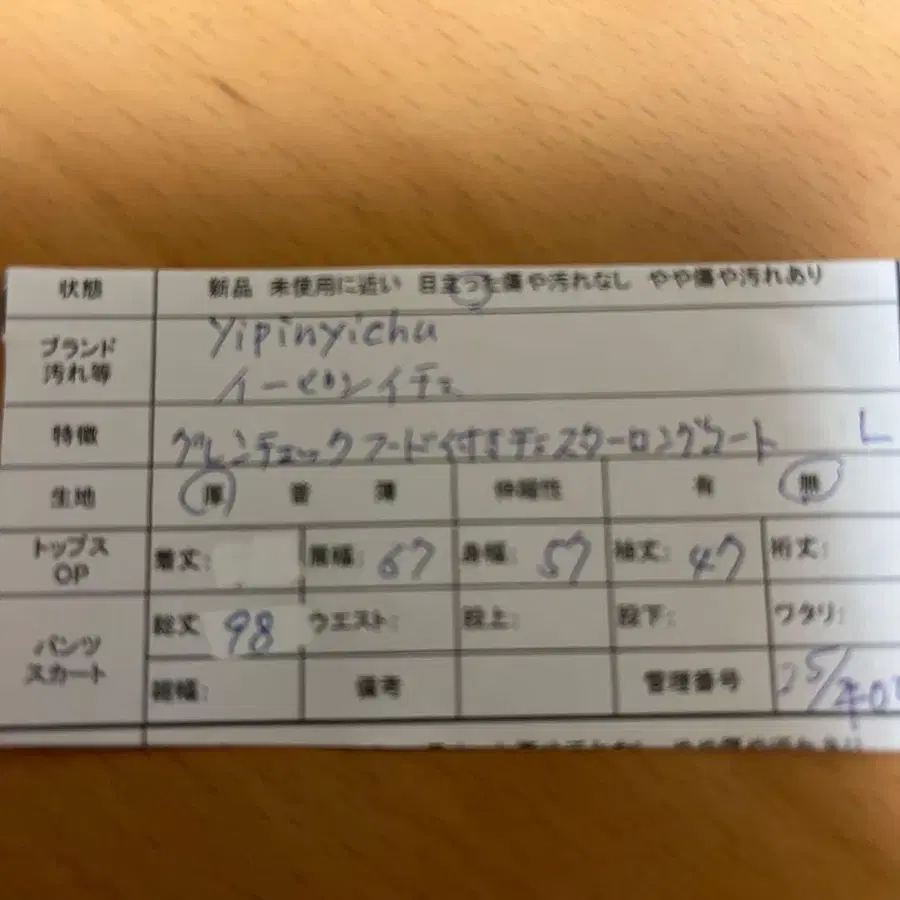 状態 新品 未使用に近い 目立った傷や汚れなし やや傷や汚れあり
ブランド 汚れ等 yipinyichu
イーピンイチュ
特徴 グレンチェックフード付きチェスターロングコート L
生地 厚 普 薄 伸縮性 有 無
トップス OP 着丈: 肩幅: 67 身幅: 57 袖丈: 47 裄丈:
パンツ スカート 総丈 98 ウエスト: 股上: 股下: ワタリ:
裾幅: 備考 管理番号